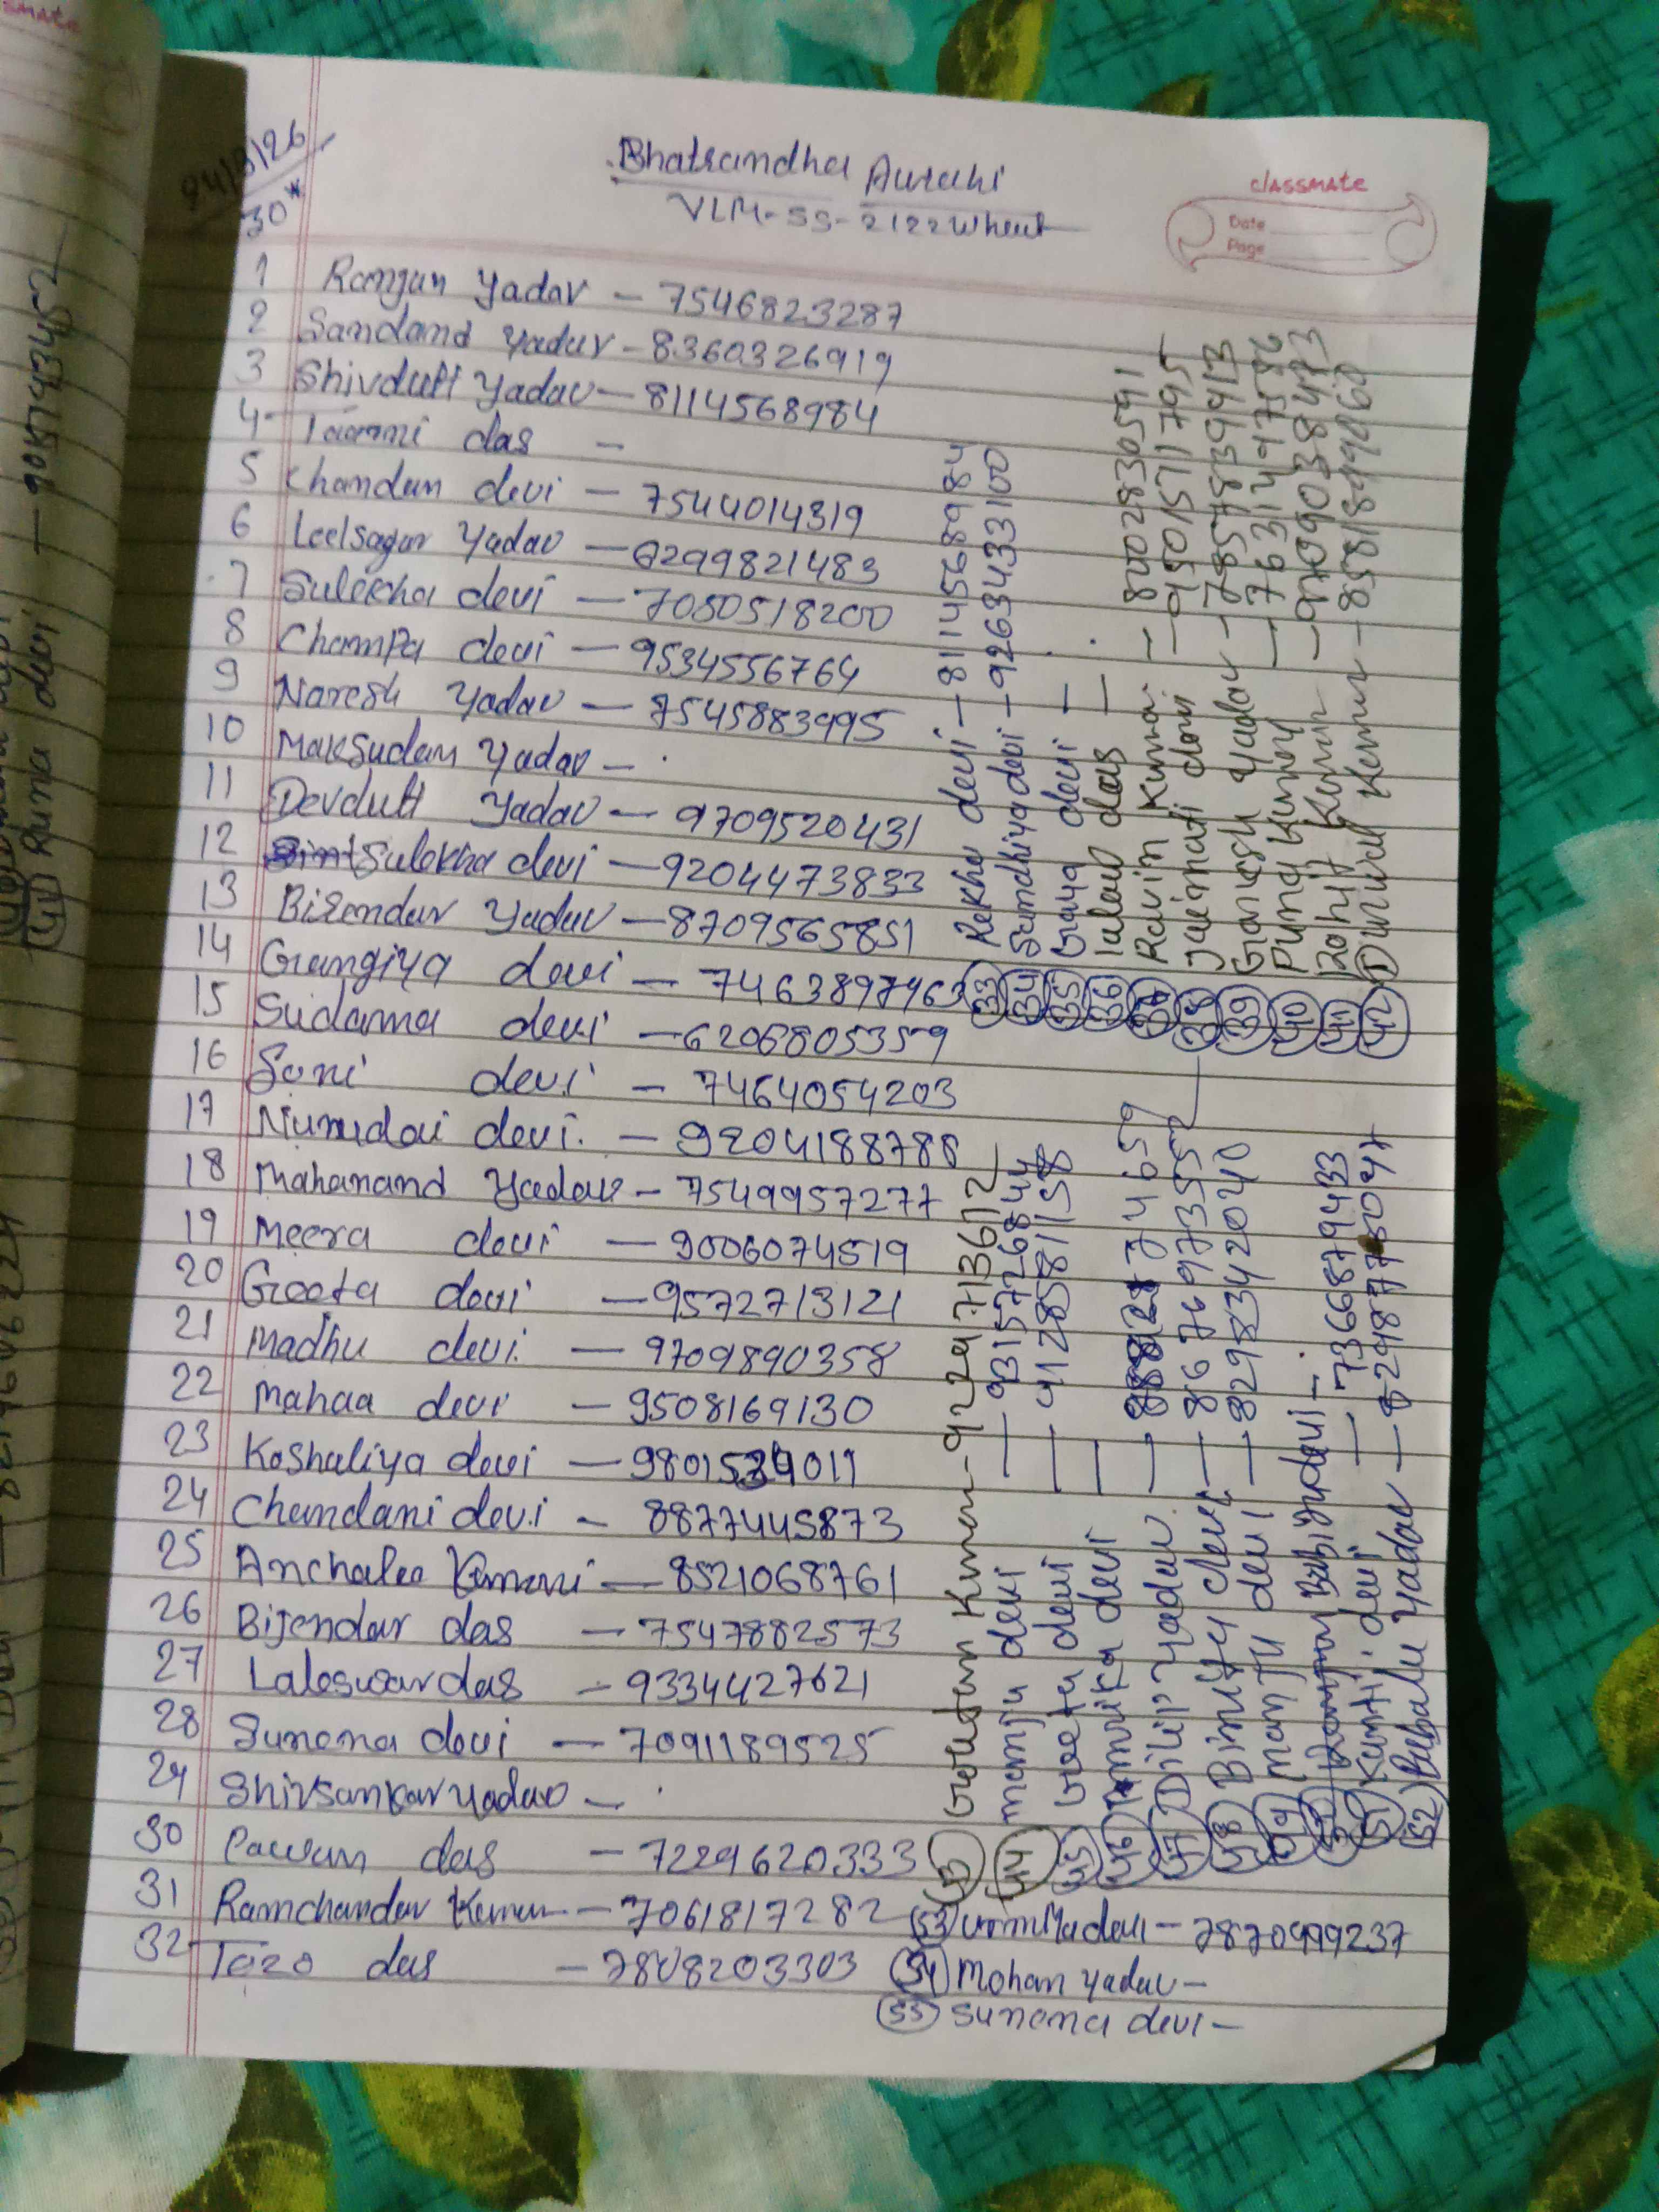 24/3/26
30*
Bhatrandha Aurahi
VLM-SS-2122 Wheat
classmate
Date
Page
1 Ranjan Yadav - 7546823287
2 Sandand Yadav - 8360326919
3 Shivdutt Yadav - 8114568984
4 Taronni das -
5 Chandan devi - 7544014319
6 Leelsagar Yadav - 6299821483
7 Sulekha devi - 7050518200
8 Champa devi - 9534556764
9 Naresh Yadav - 7545883995
10 Maksudan Yadav -
11 Devdutt Yadav - 9709520431
12 Sulekha devi - 9204473833
13 Birendar Yadav - 8709565851
14 Gangiya devi - 7463897463
15 Sudama devi - 6206805359
16 Soni devi - 7464054203
17 Nunudai devi. - 9204188788
18 Mahanand Yadav - 7549957277
19 Meera devi - 9006074519
20 Geeta devi - 9572713121
21 Madhu devi. - 9709890358
22 Mahaa devi - 9508169130
23 Koshaliya devi - 9801534011
24 Chandani devi - 8877445873
25 Anchalee Kumari - 8521068761
26 Bijendar das - 7547882573
27 Laleswar das - 9334427621
28 Sunena devi - 7091189525
29 Shivsankar Yadav -
30 Pawan das - 7229620333
31 Ramchandar Kumar - 7061817282
32 Tazo das - 7808203303
33 Rekha devi - 8114568984
34 Sundhiya devi - 9263433100
35 Gaya devi -
36 Talevo das -
37 Ravin Kumar - 8002830591
38 Jaemati devi - 9501571795
39 Ganesh Yadav - 7857839913
40 Punaj Kumar - 7631497586
41 Rohit Kumar - 9709038473
42 Diwal Kumar - 8581899260
43 Gautam Kumar - 9229713612
44 manju devi - 9315726844
45 Geeta devi - 9128581158
46 devi -
47 Dilip Yadav - 74659
48 Binity devi - 8676973552
49 Manju devi - 8298342040
50 Babi devi -
51 Kunti devi - 7366879433
52 Bablu Yadav - 6298775047
53 urmila devi - 7870499237
54 Mohan Yadav -
55 Sunena devi -
Runa devi - 9057493452